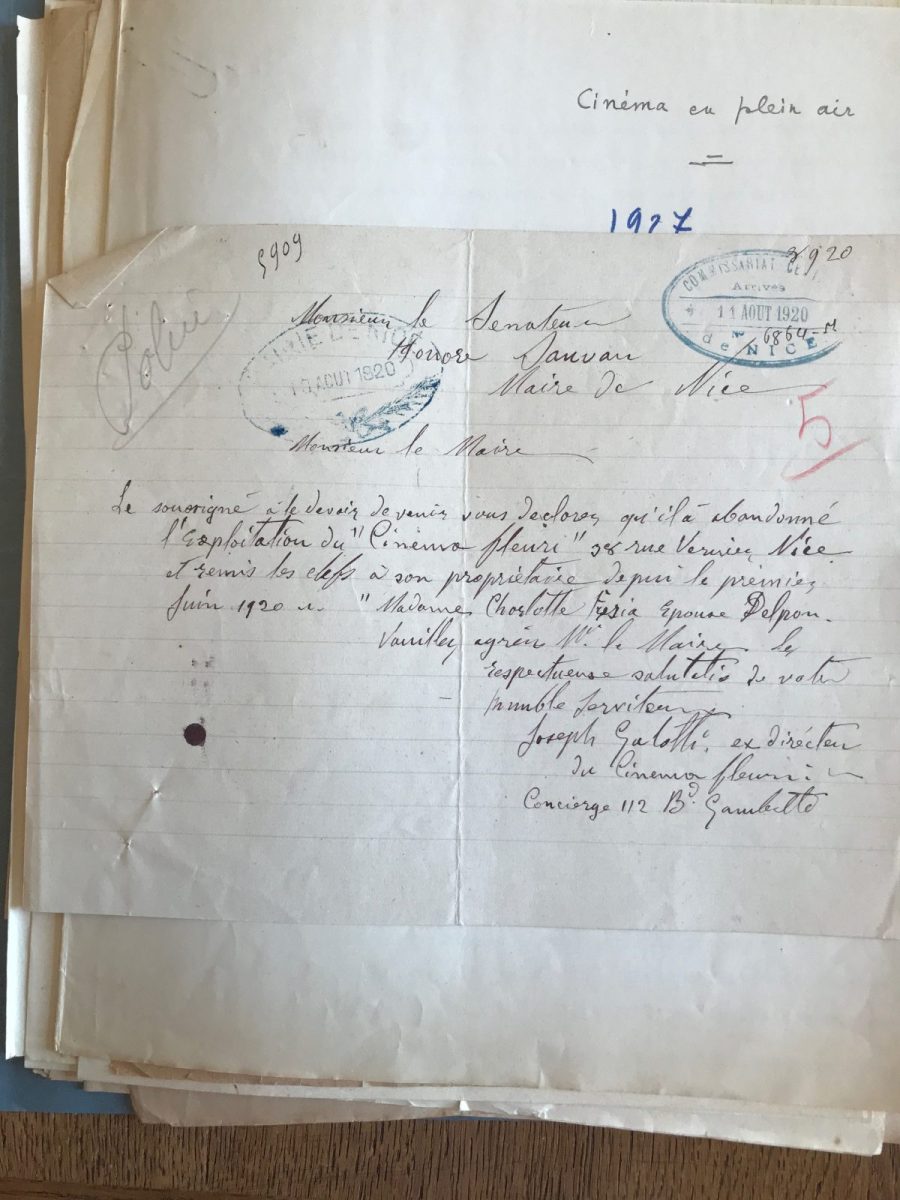 Cinéma en plein air
1927
5909
Police
3920
COMMISSARIAT CE
Arrivée
11 AOUT 1920
N° 6864-M
de NICE
MAIRIE DE NICE
AOUT 1920
5
Monsieur le Senateur
Honore Sauvan
Maire de Nice
Monsieur le Maire
Le sousigné à le devoir de venir vous declarer qu'il à abandonné
l'Exploitation du "Cinéma fleuri" 38 rue Vernier Nice
et remis les clefs à son propriétaire depui le prémier
Juin 1920 " Madame Charlotte Epouse Delpon.
Vauilley agréer Mr. le Maire les
respectueuse salutatio de votre
humble serviteur
Joseph Galotti, ex directeur
du Cinema fleuri
Concierge 112 Bd. Gambetta